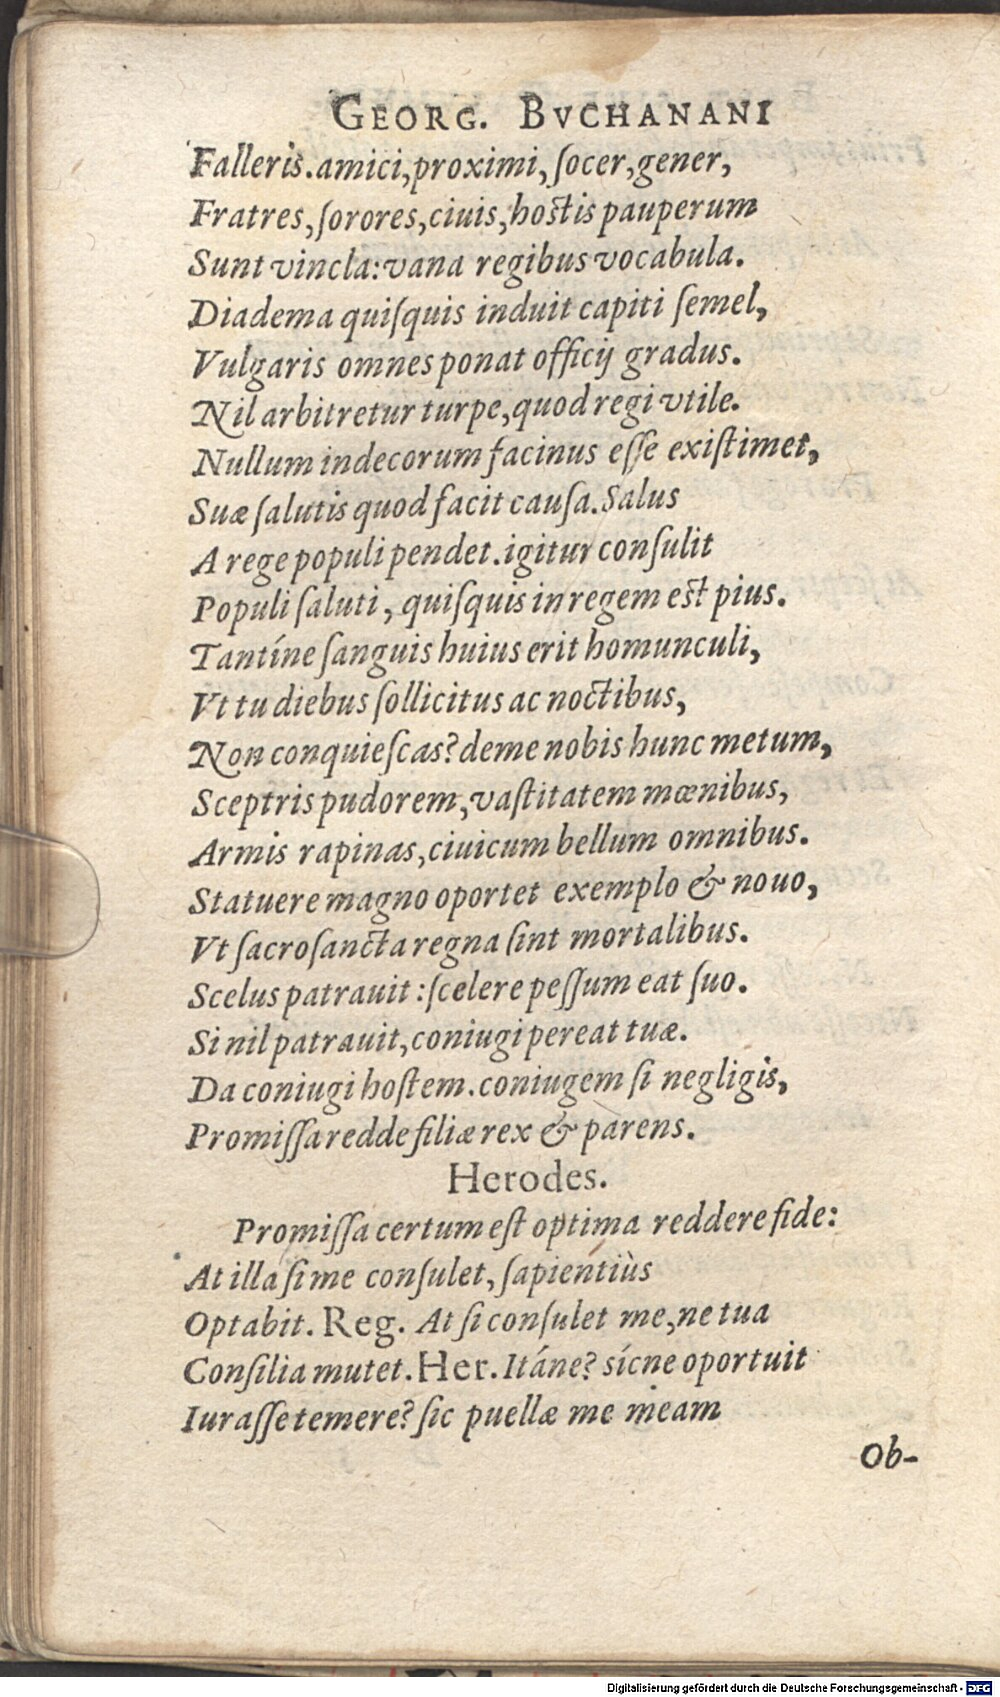 GEORG. BVCHANANI
Falleris. amici, proximi, ſocer, gener,
Fratres, ſorores, ciuis, hostis pauperum
Sunt vincla: vana regibus vocabula.
Diadema quiſquis induit capiti ſemel,
Vulgaris omnes ponat officij gradus.
Nil arbitretur turpe, quod regi vtile.
Nullum indecorum facinus eſſe exiſtimet,
Suæ ſalutis quod facit cauſa. Salus
A rege populi pendet. igitur conſulit
Populi ſaluti, quiſquis in regem est pius.
Tantíne ſanguis huius erit homunculi,
Vt tu diebus ſollicitus ac noctibus,
Non conquieſcas? deme nobis hunc metum,
Sceptris pudorem, vaſtitatem mœnibus,
Armis rapinas, ciuicum bellum omnibus.
Statuere magno oportet exemplo & nouo,
Vt ſacroſancta regna ſint mortalibus.
Scelus patrauit: ſcelere peſſum eat ſuo.
Si nil patrauit, coniugi pereat tuæ.
Da coniugi hoſtem. coniugem ſi negligis,
Promiſſa redde filiæ rex & parens.
Herodes.
Promiſſa certum eſt optima reddere fide:
At illa ſi me conſulet, ſapientiùs
Optabit. Reg. At ſi conſulet me, ne tua
Conſilia mutet. Her. Itáne? sícne oportuit
Iuraſſe temere? ſic puellæ me meam
Ob-
Digitalisierung gefördert durch die Deutsche Forschungsgemeinschaft - DFG